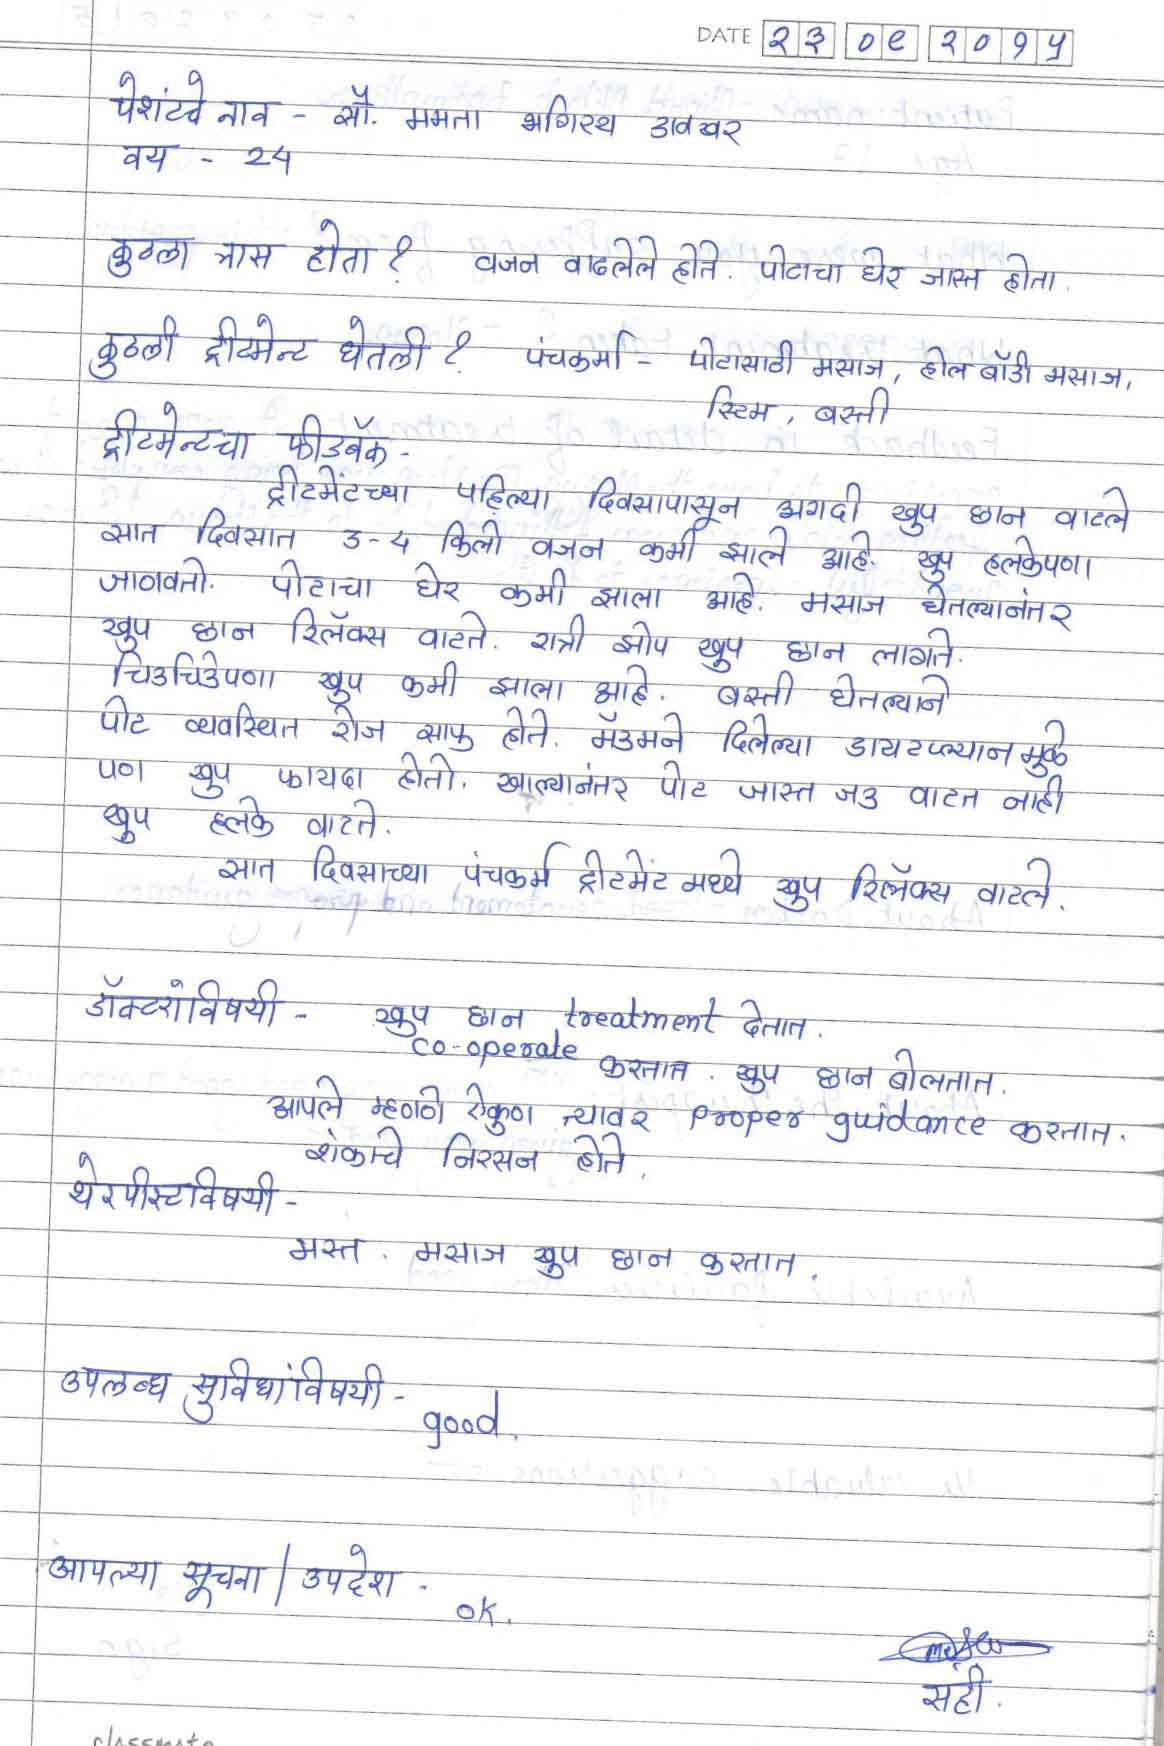 DATE २३ ०९ २०१५
पेशंटचे नाव - सौ. ममता भगिरथ
वय - 24
कुठला त्रास होता? वजन वाढलेले होते. पोटाचा घेर जास्त होता.
कुठली ट्रीटमेन्ट घेतली? पंचकर्मा - पोटासाठी मसाज, होल बॉडी मसाज,
स्टिम, बस्ती
ट्रीटमेन्टचा फीडबॅक -
ट्रीटमेंटच्या पहिल्या दिवसापासून अगदी खुप छान वाटले
सात दिवसात 3-4 किलो वजन कमी झाले आहे. खुप हलकेपणा
जाणवतो. पोटाचा घेर कमी झाला आहे. मसाज घेतल्यानंतर
खुप छान रिलॅक्स वाटते. रात्री झोप खुप छान लागते.
चिडचिडेपणा खुप कमी झाला आहे. बस्ती घेतल्याने
पोट व्यवस्थित रोज साफ होते. मॅडमने दिलेल्या डायटप्ल्यान मुळे
पण खुप फायदा होतो. खाल्यानंतर पोट जास्त जड वाटत नाही
खुप हलके वाटते.
सात दिवसाच्या पंचकर्म ट्रीटमेंट मध्ये खुप रिलॅक्स वाटले.
डॉक्टरांविषयी - खुप छान treatment देतात.
co-operate करतात. खुप छान बोलतात.
आपले म्हणणे ऐकुण त्यावर proper guidance करतात.
शंकांचे निरसन होते.
थेरपीस्टविषयी -
मस्त. मसाज खुप छान करतात.
उपलब्ध सुविधांविषयी -
good.
आपल्या सूचना / उपदेश -
ok.
सही.
classmate